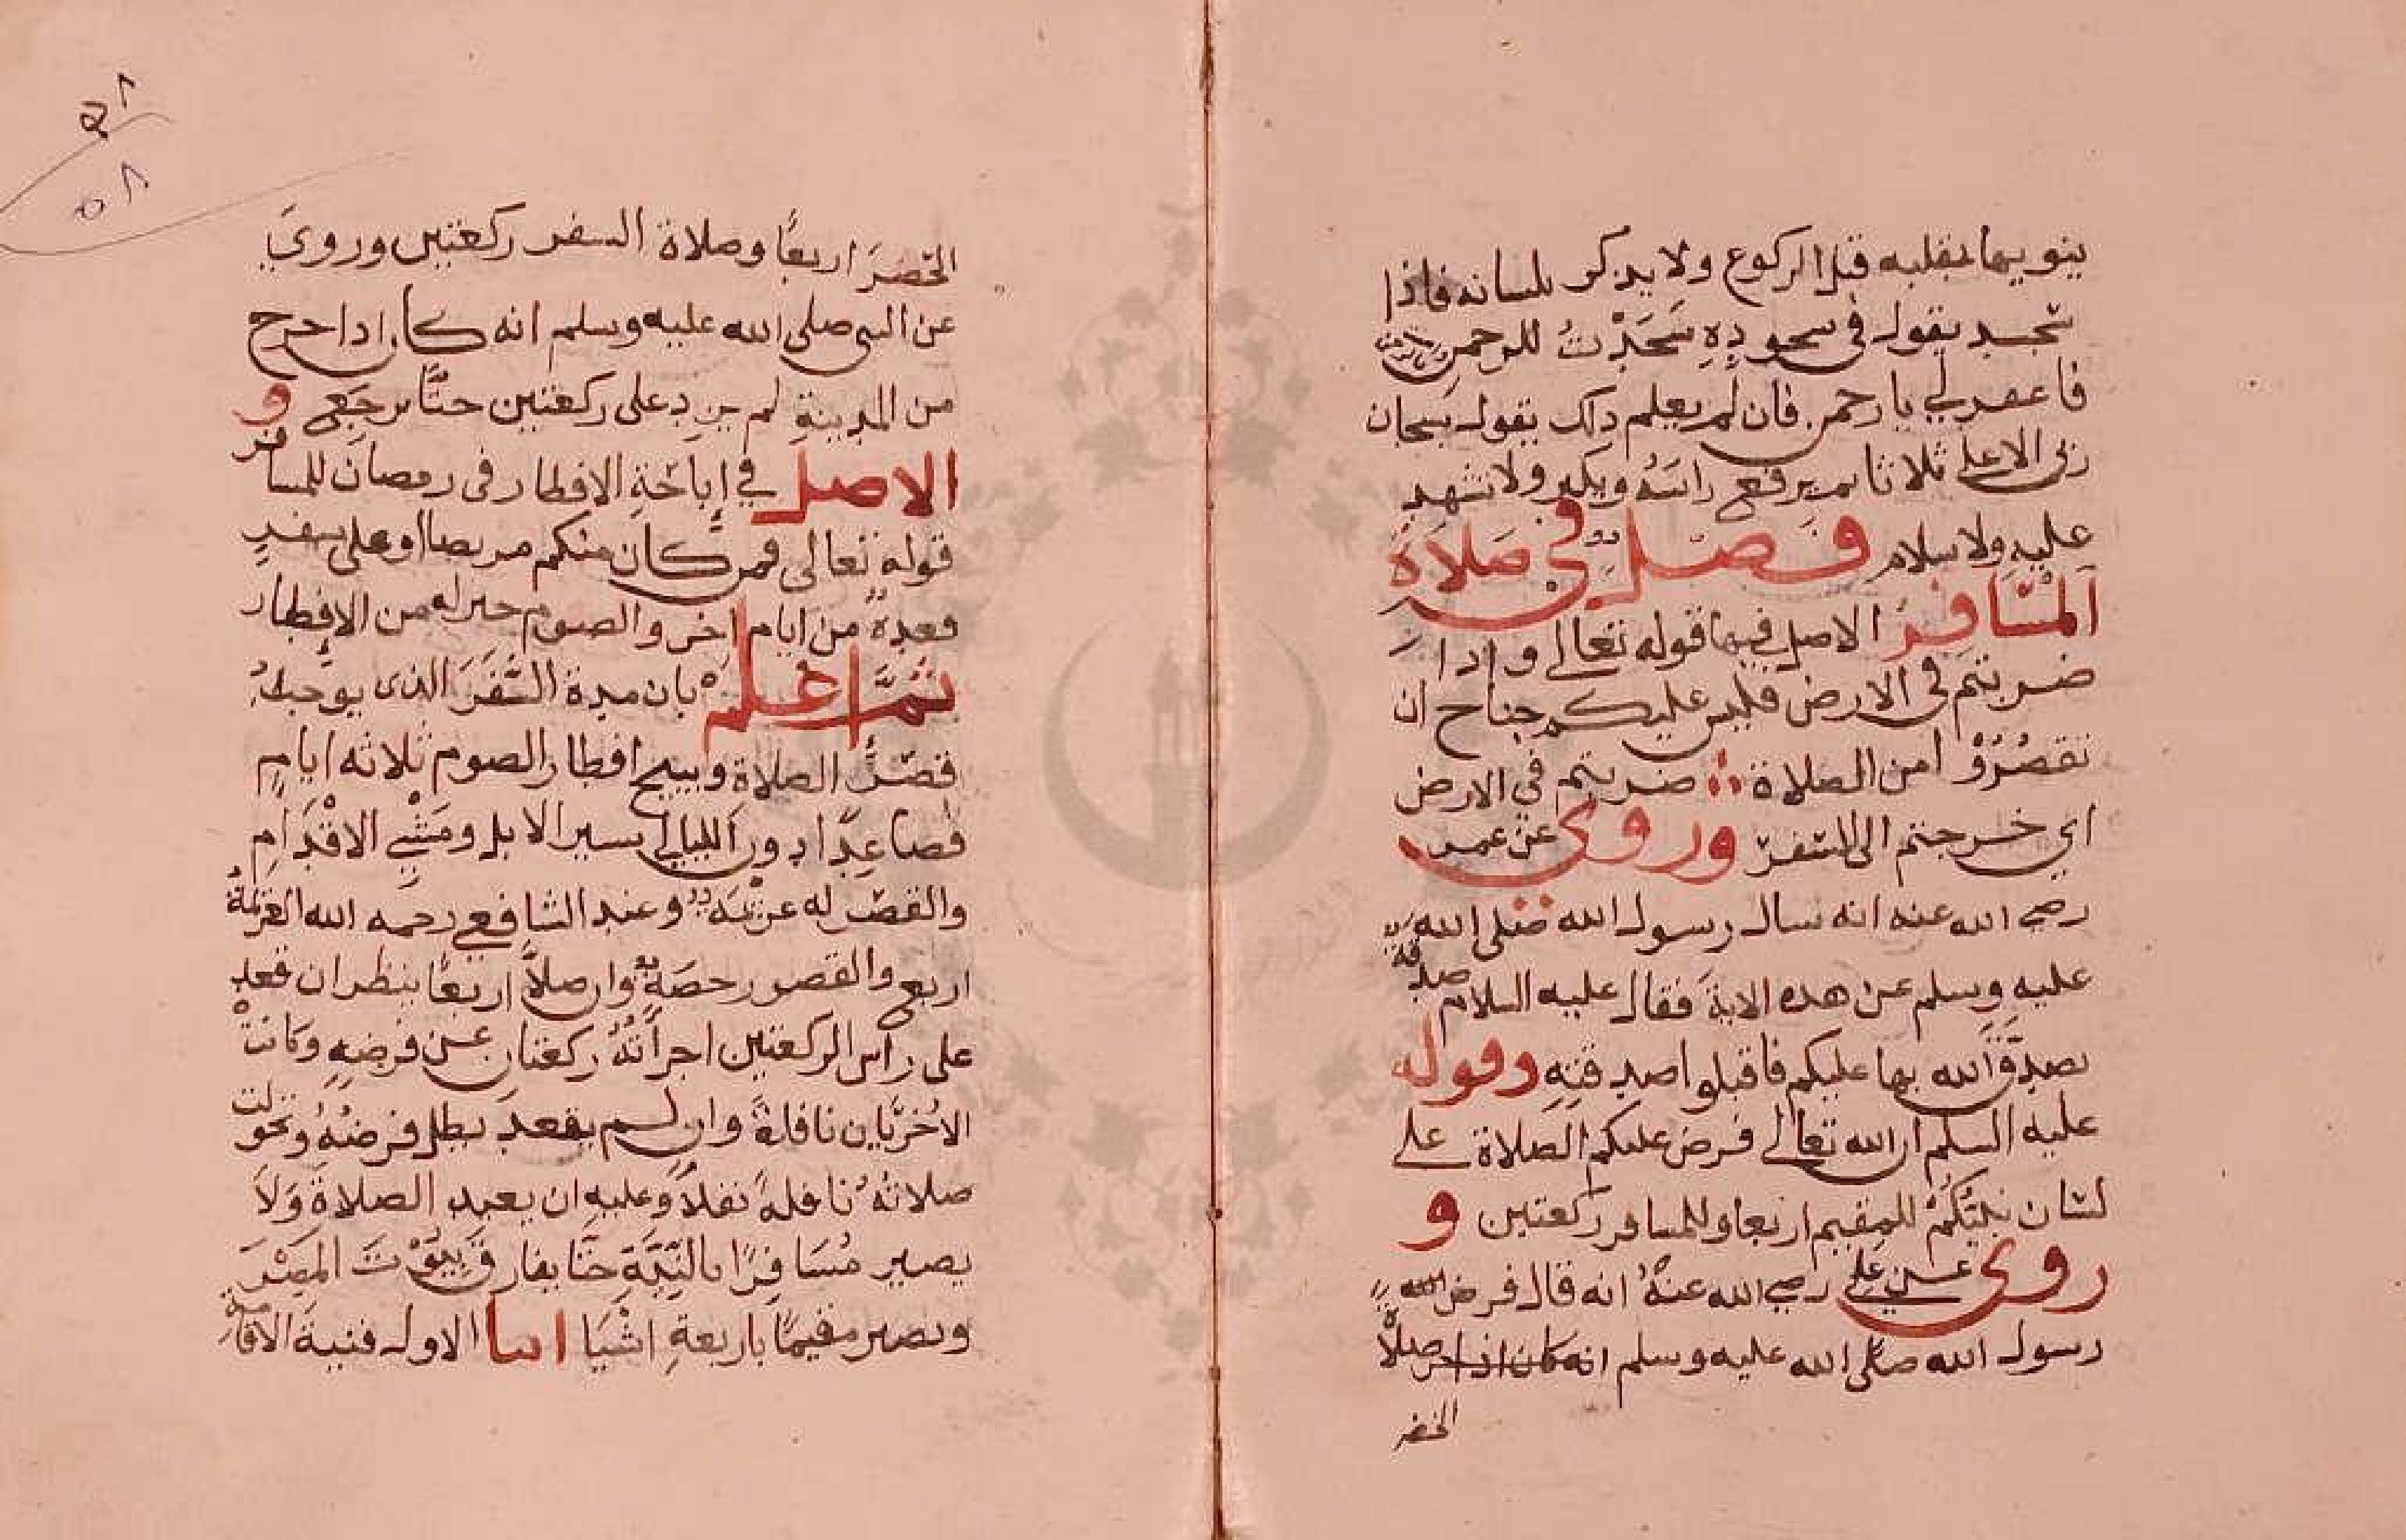 ينويها بقلبه قبل الركوع ولا يذكر بلسانه فاذا
سجد يقول في سجوده سَجَدْتُ للرحمن
فاغفرلي يا رحمن فان لم يعلم ذلك يقول سبحان
ربي الاعلى ثلاثا ثم يرفع راسَهُ ويكبر ولا تشهد
عليه ولا سلام فصل في صلاة
المسافر الاصل فيها قوله تعالى واذا
ضربتم في الارض فليس عليكم جناح ان
تقصُرُوْا من الصلاة ضربتم في الارض
اي خرجتم الى السفر وروي عن عمر
رضي الله عنه انه سال رسول الله صلى الله
عليه وسلم عن هذه الاية فقال عليه السلام صدقة
تصدق الله بها عليكم فاقبلوا صدقته وقوله
عليه السلم ان الله تعالى فرض عليكم الصلاة على
لسان نبيّكُمْ للمقيم اربعا وللمسافر ركعتين و
روي عن علي رضي الله عنهُ انه قال فرض
رسول الله صلى الله عليه وسلم انه كان اذا صلاة
الحضر
٥٨
٥٨
الحضرَ اربعًا وصلاة السفر ركعتين ورويَ
عن النبي صلى الله عليه وسلم انه كان اذا خرج
من المدينةِ لم يزد على ركعتين حتَّا يرجع و
الاصل في إباحَةِ الافطار في رمضان للمسافر
قوله تعالى فمن كان منكم مريضا او على سفرٍ
فعدةٌ من ايام اخر والصوم خير له من الإفطار
ثمَّ اعلم بان مدة السَّفَرَ الذي يوجبُ
قصْرُ الصلاة ويبيح افطار الصوم ثلاثه ايامٍ
فصاعدًا دون الليالي بسير الابل ومَشْيِ الاقْدَامِ
والقصر له عزيمَة وعند الشافعي رحمه الله العزيمةُ
اربع والقصور رخصَة وان صلاَّ اربعًا ينظر ان قعد
على راس الركعتين اجزأتهُ ركعتان عن فرضِهِ وكانتْ
الاُخْرَيَاين نافلةً وان لم يقعد بطل فرضُهُ وتحولت
صلاتهُ نافلةً نفلاً وعليه ان يعيد الصلاةَ وَلاَ
يصير مُسَافِرًا بالنِّيَّةِ حَتَّا يفارق بيُوْتَ المِصْرَ
ويصير مقيمًا باربعةِ اشْيَا اما الاول فنية الاقامة